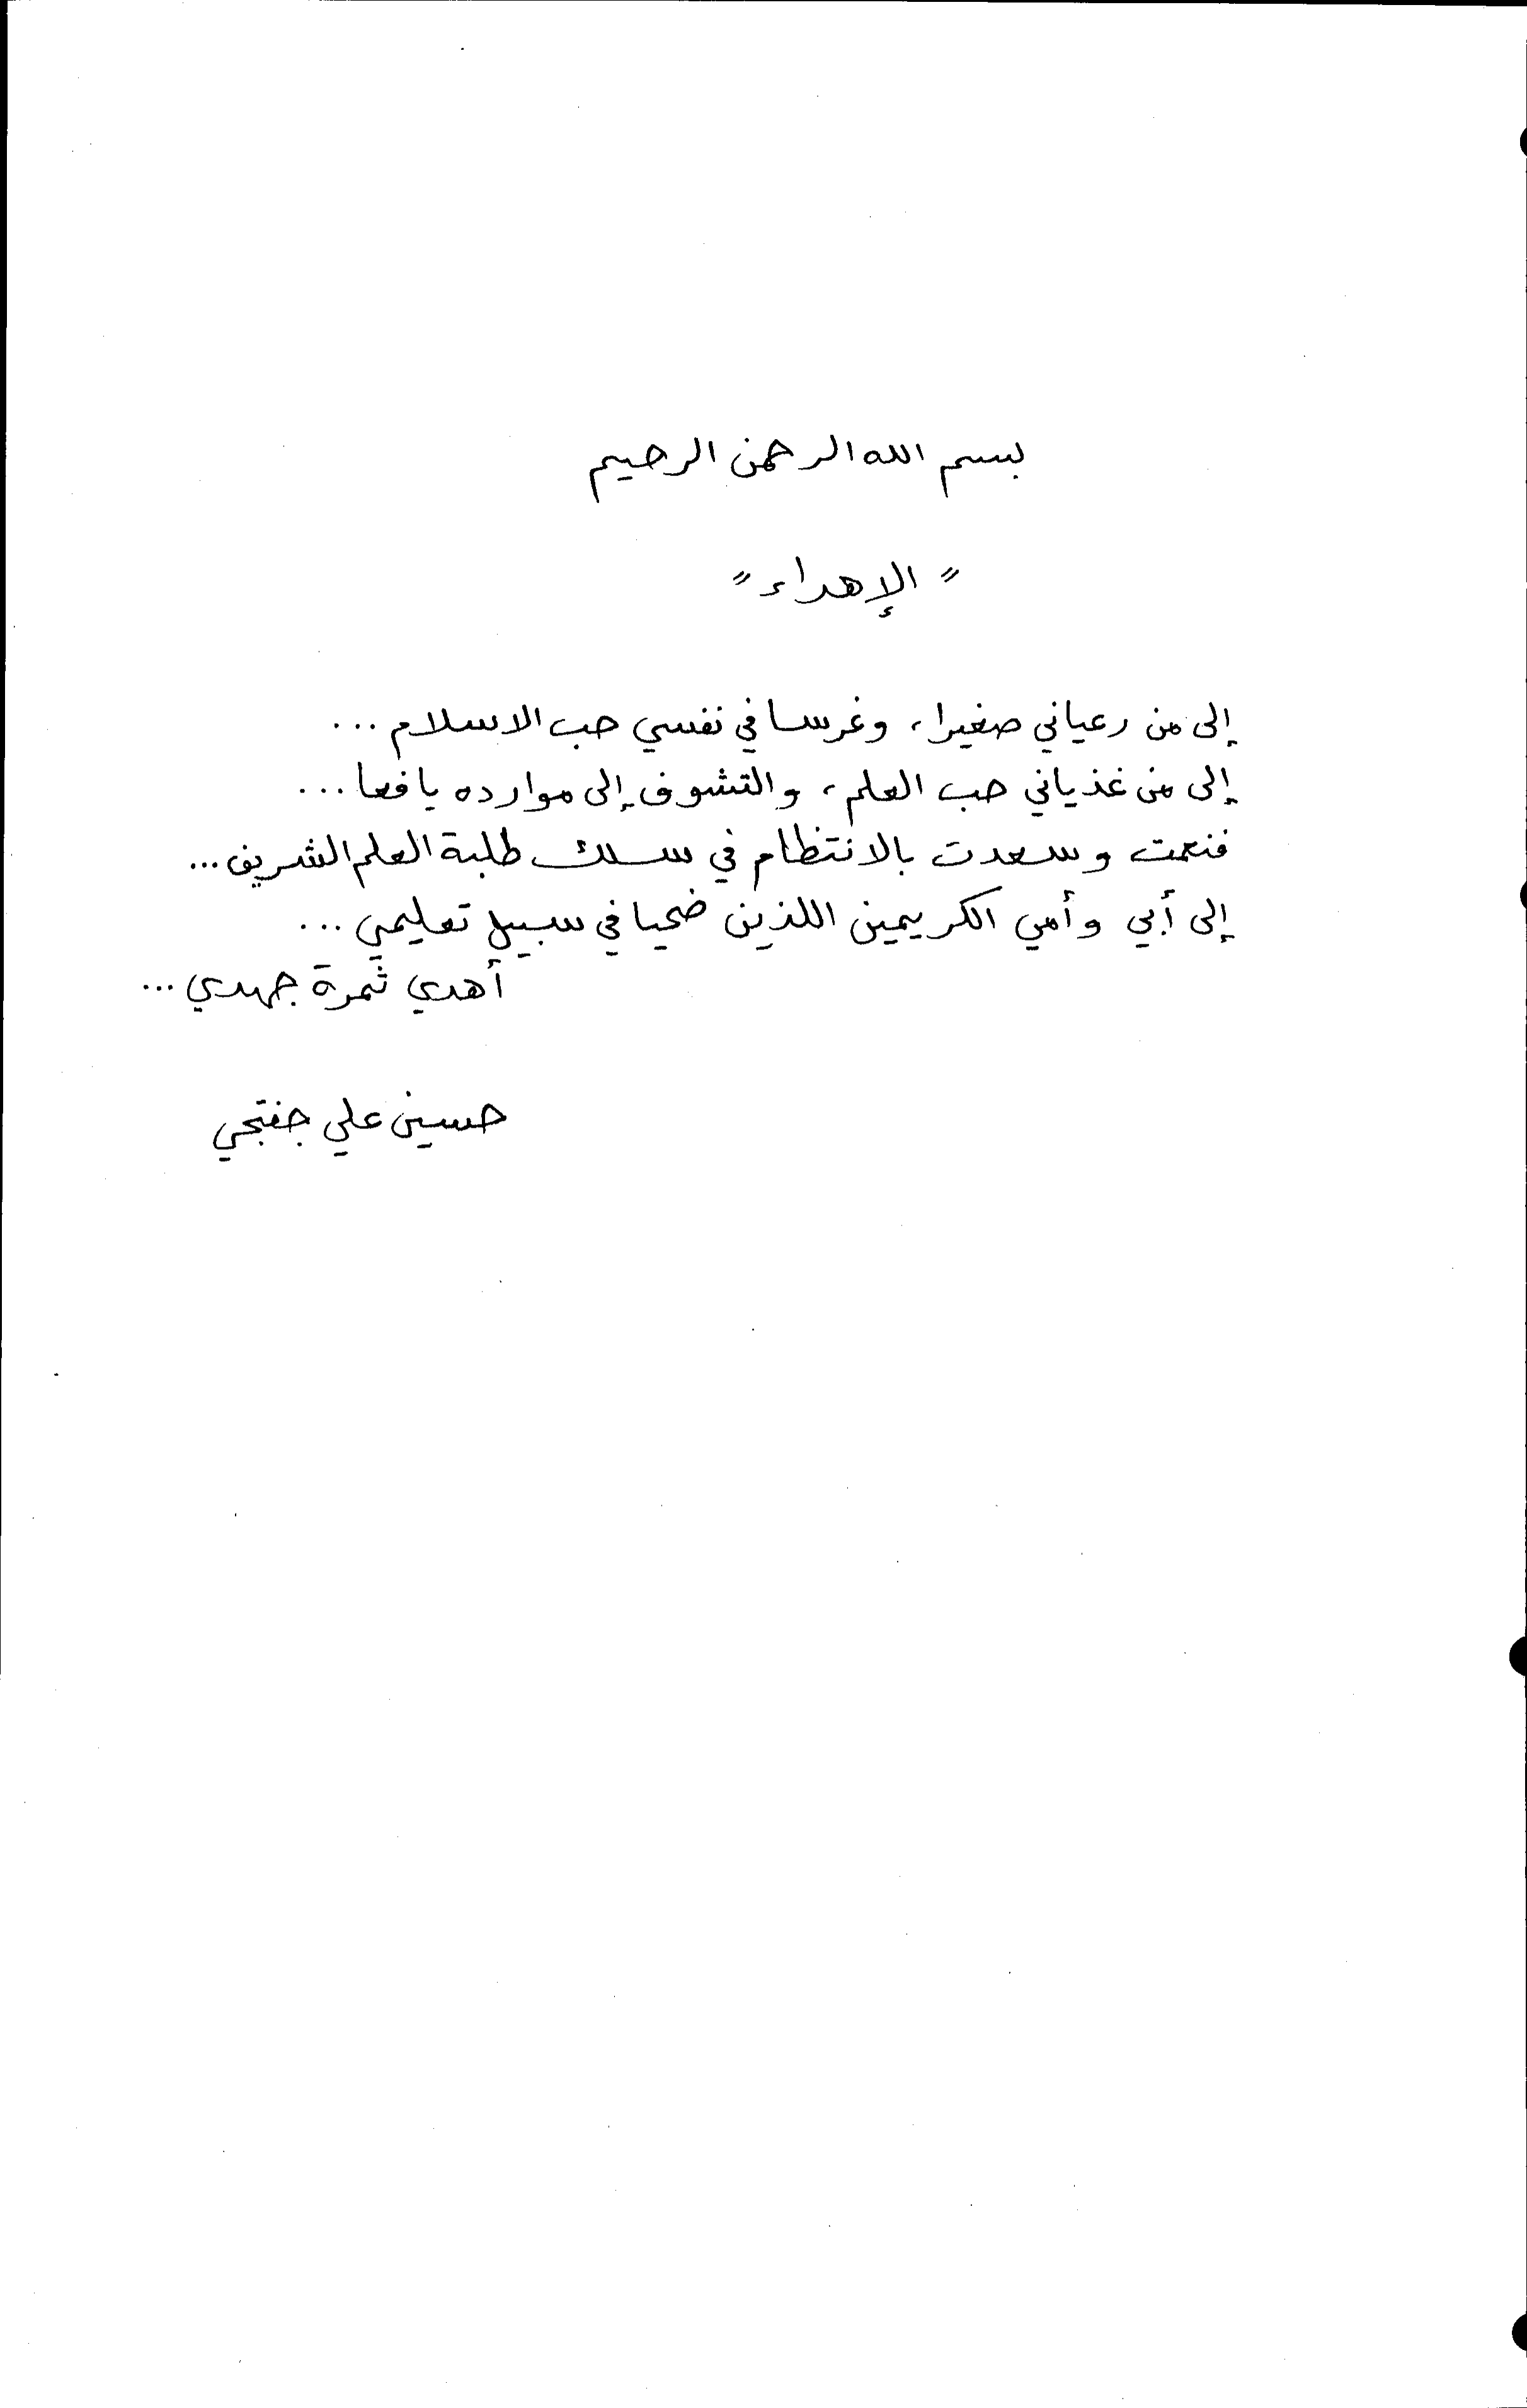 بسم الله الرحمن الرحيم
" الإهداء "
إلى من رعياني صغيرا، وغرسا في نفسي حب الاسلام ...
إلى من غذياني حب العلم، والتشوف إلى موارده يافعا ...
فنعمت وسعدت بالانتظام في سلك طلبة العلم الشريف ...
إلى أبي وأمي الكريمين اللذين ضحيا في سبيل تعليمي ...
أهدي ثمرة جهدي ...
حسين علي جفتجي